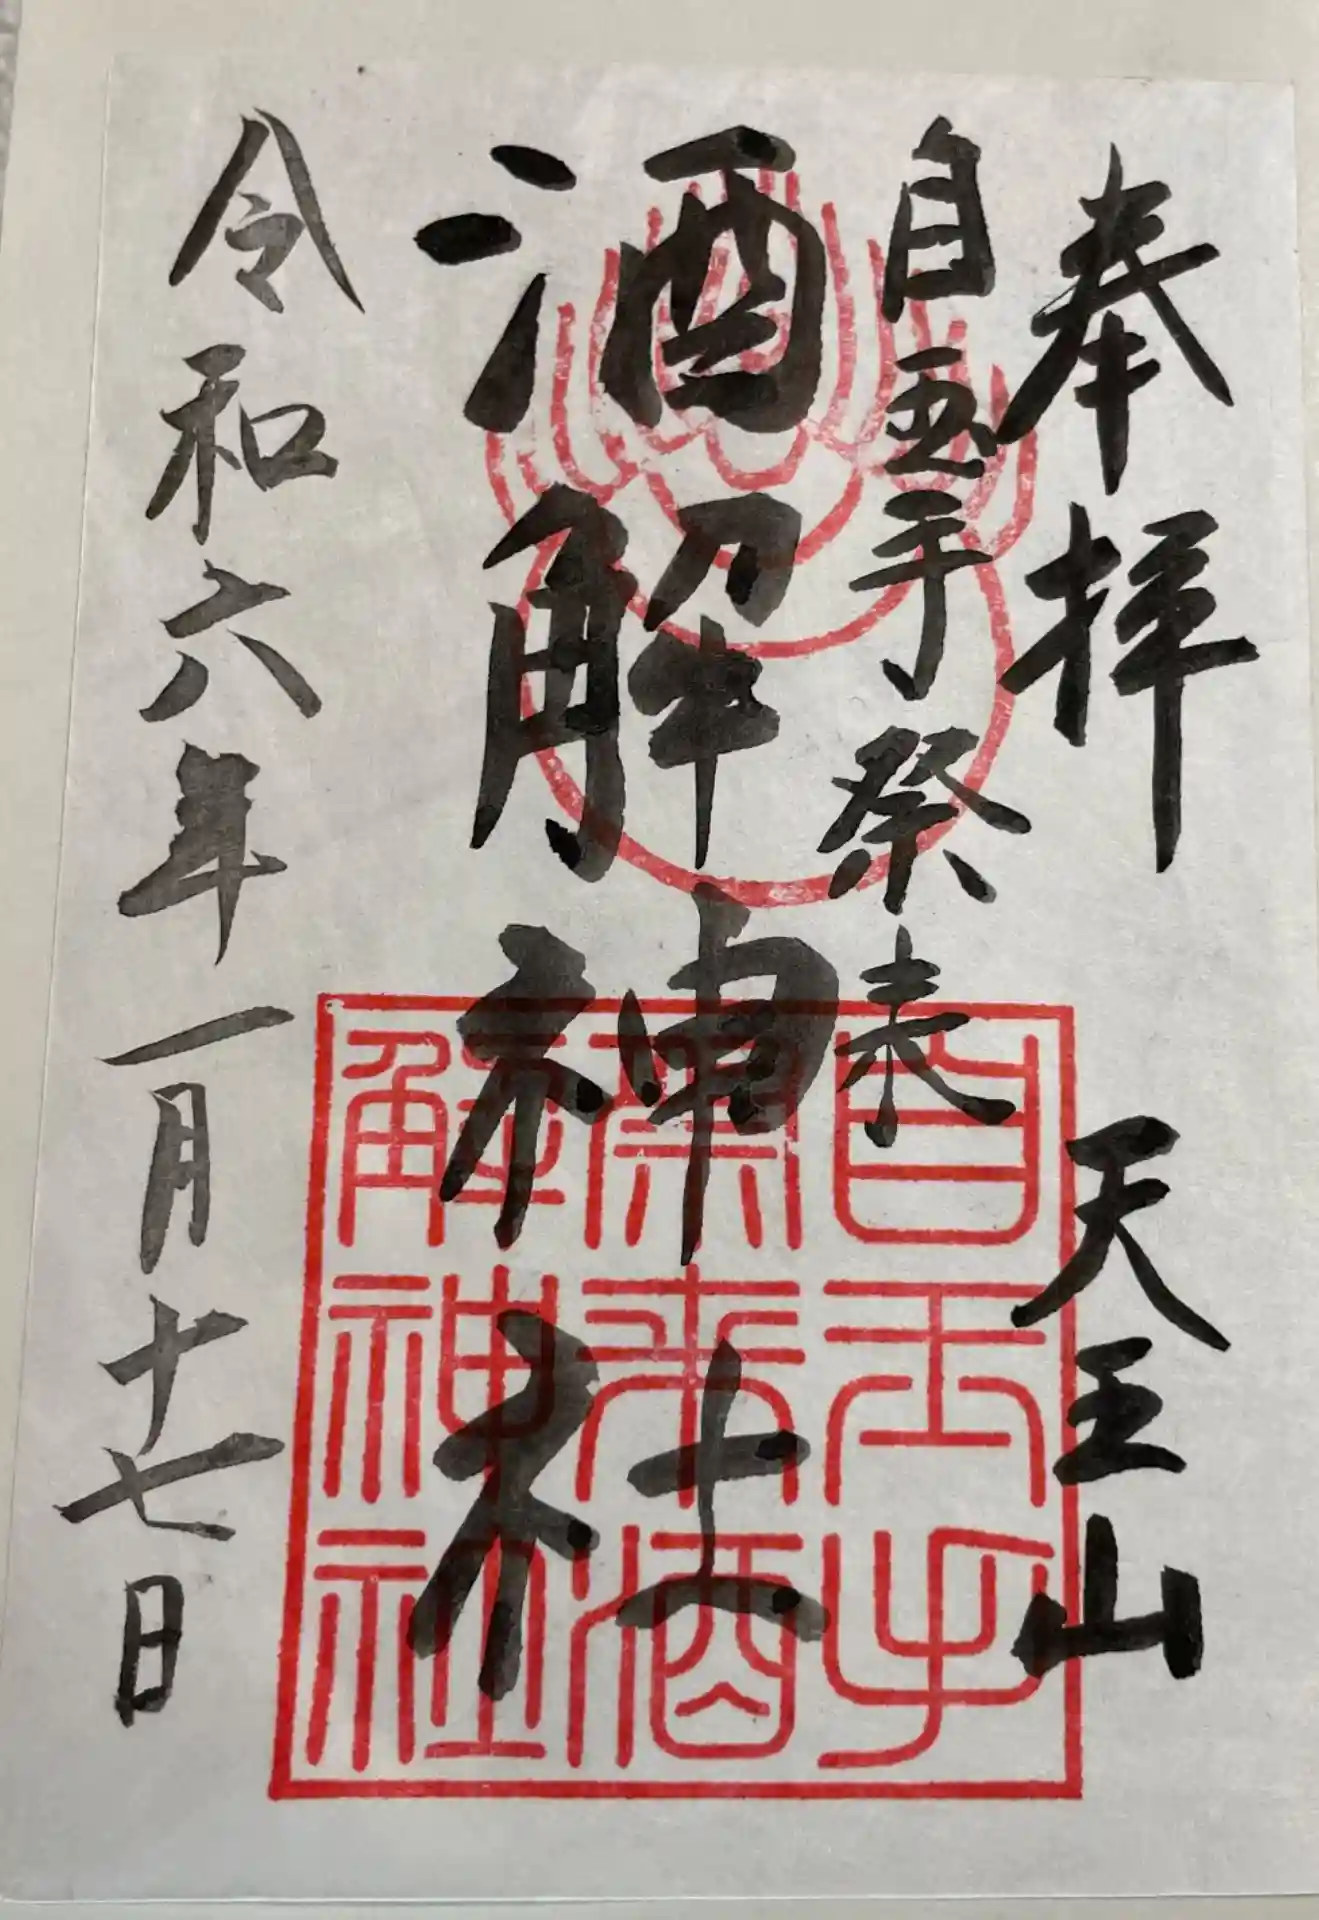 奉拝 天王山
自玉手祭来
酒解神社
令和六年一月十七日
自玉手
祭来酒
解神社